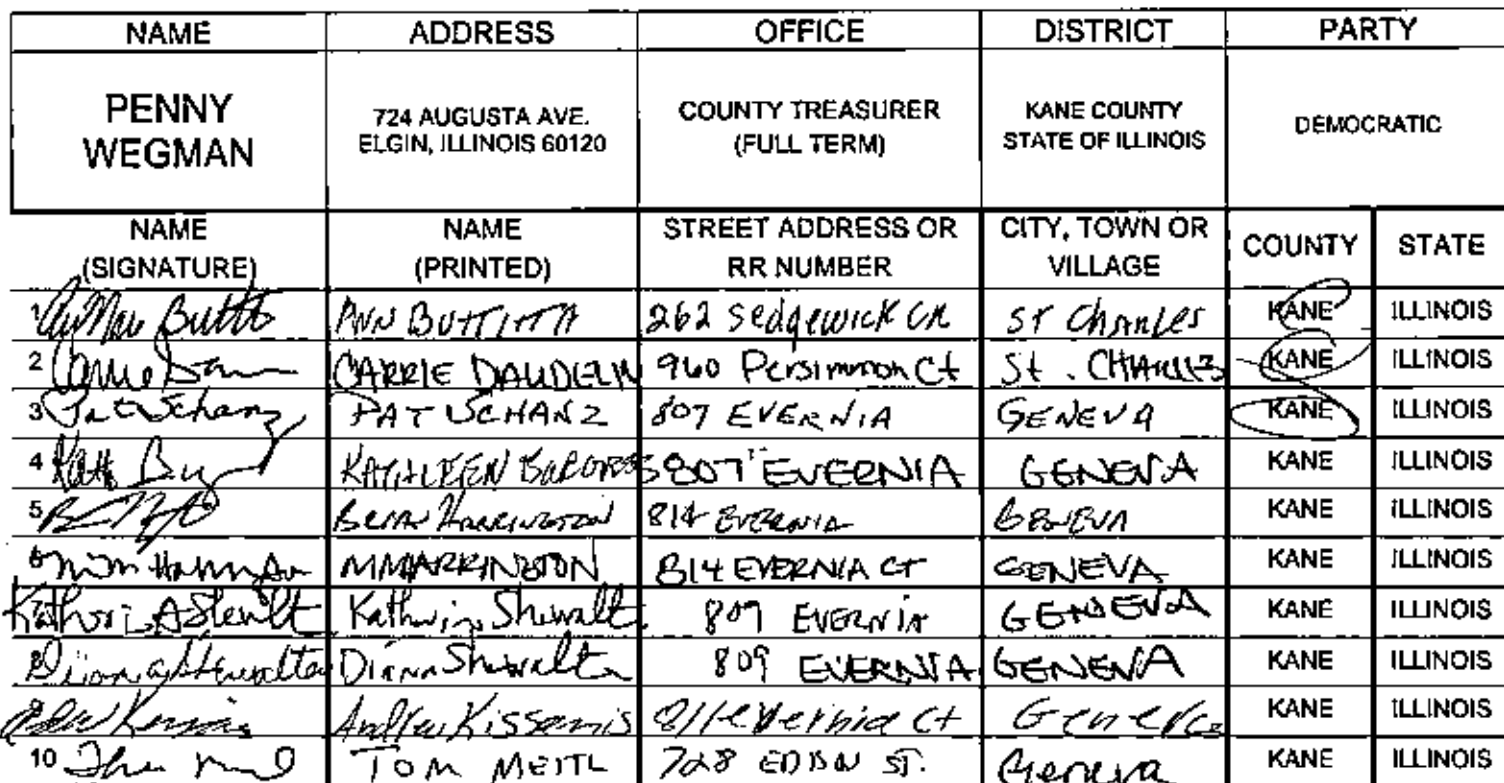 NAME ADDRESS OFFICE DISTRICT PARTY
PENNY WEGMAN
724 AUGUSTA AVE. ELGIN, ILLINOIS 60120
COUNTY TREASURER (FULL TERM)
KANE COUNTY STATE OF ILLINOIS
DEMOCRATIC
NAME (SIGNATURE) NAME (PRINTED) STREET ADDRESS OR RR NUMBER CITY, TOWN OR VILLAGE COUNTY STATE
1 ANN BUTTITTA 262 Sedgewick CR ST Charles KANE ILLINOIS
2 CARRIE DAUDELIN 960 Persimmon Ct St. CHARLES KANE ILLINOIS
3 Pat Schanz PAT SCHANZ 807 EVERNIA GENEVA KANE ILLINOIS
4 KATHLEEN 807 EVERNIA GENEVA KANE ILLINOIS
5 HARRINGTON 814 EVERNIA GENEVA KANE ILLINOIS
6 MMHARRINGTON 814 EVERNIA CT GENEVA KANE ILLINOIS
7 Shewalt EVERNIA GENEVA KANE ILLINOIS
8 Diana 809 EVERNIA GENEVA KANE ILLINOIS
9 Andrew Kissamis 811 evernia Ct Geneva KANE ILLINOIS
10 TOM MEITL 728 ST. Geneva KANE ILLINOIS